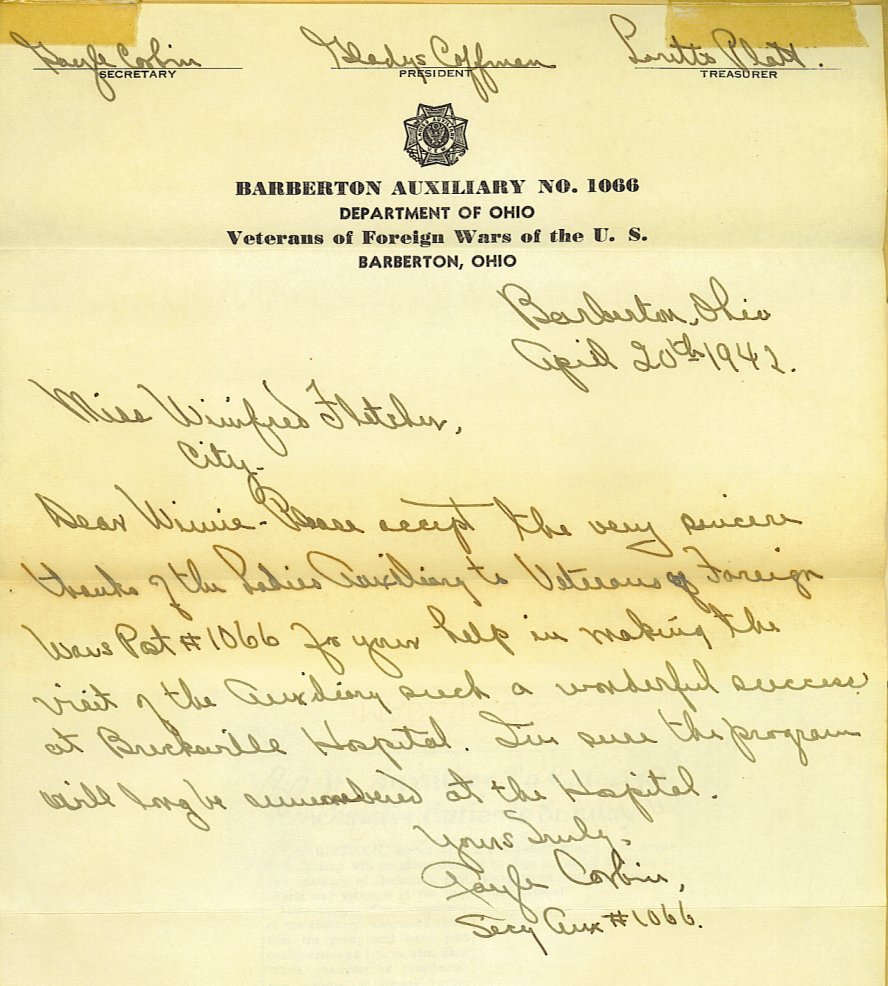 Gayle Corbin Gladys Coffman Loretta Platt.
SECRETARY PRESIDENT TREASURER
BARBERTON AUXILIARY NO. 1066
DEPARTMENT OF OHIO
Veterans of Foreign Wars of the U. S.
BARBERTON, OHIO
Barberton, Ohio
April 20th 1942.
Miss Winifred Fletcher,
City-
Dear Winnie- Please accept the very sincere
thanks of the Ladies Auxiliary to Veterans of Foreign
Wars Post #1066 for your help in making the
visit of the Auxiliary such a wonderful success
at Brecksville Hospital. I'm sure the program
will long be remembered at the Hospital.
Yours Truly-
Gayle Corbin,
Secy Aux #1066.